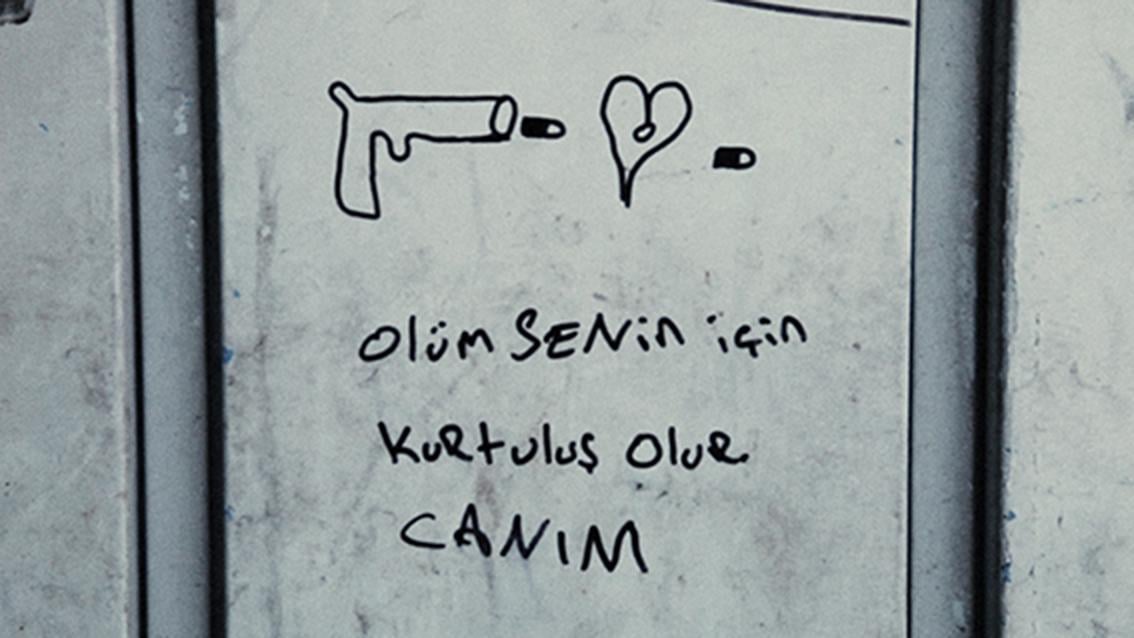 Olüm SENin için
KuRtuluş OluR
CANIM